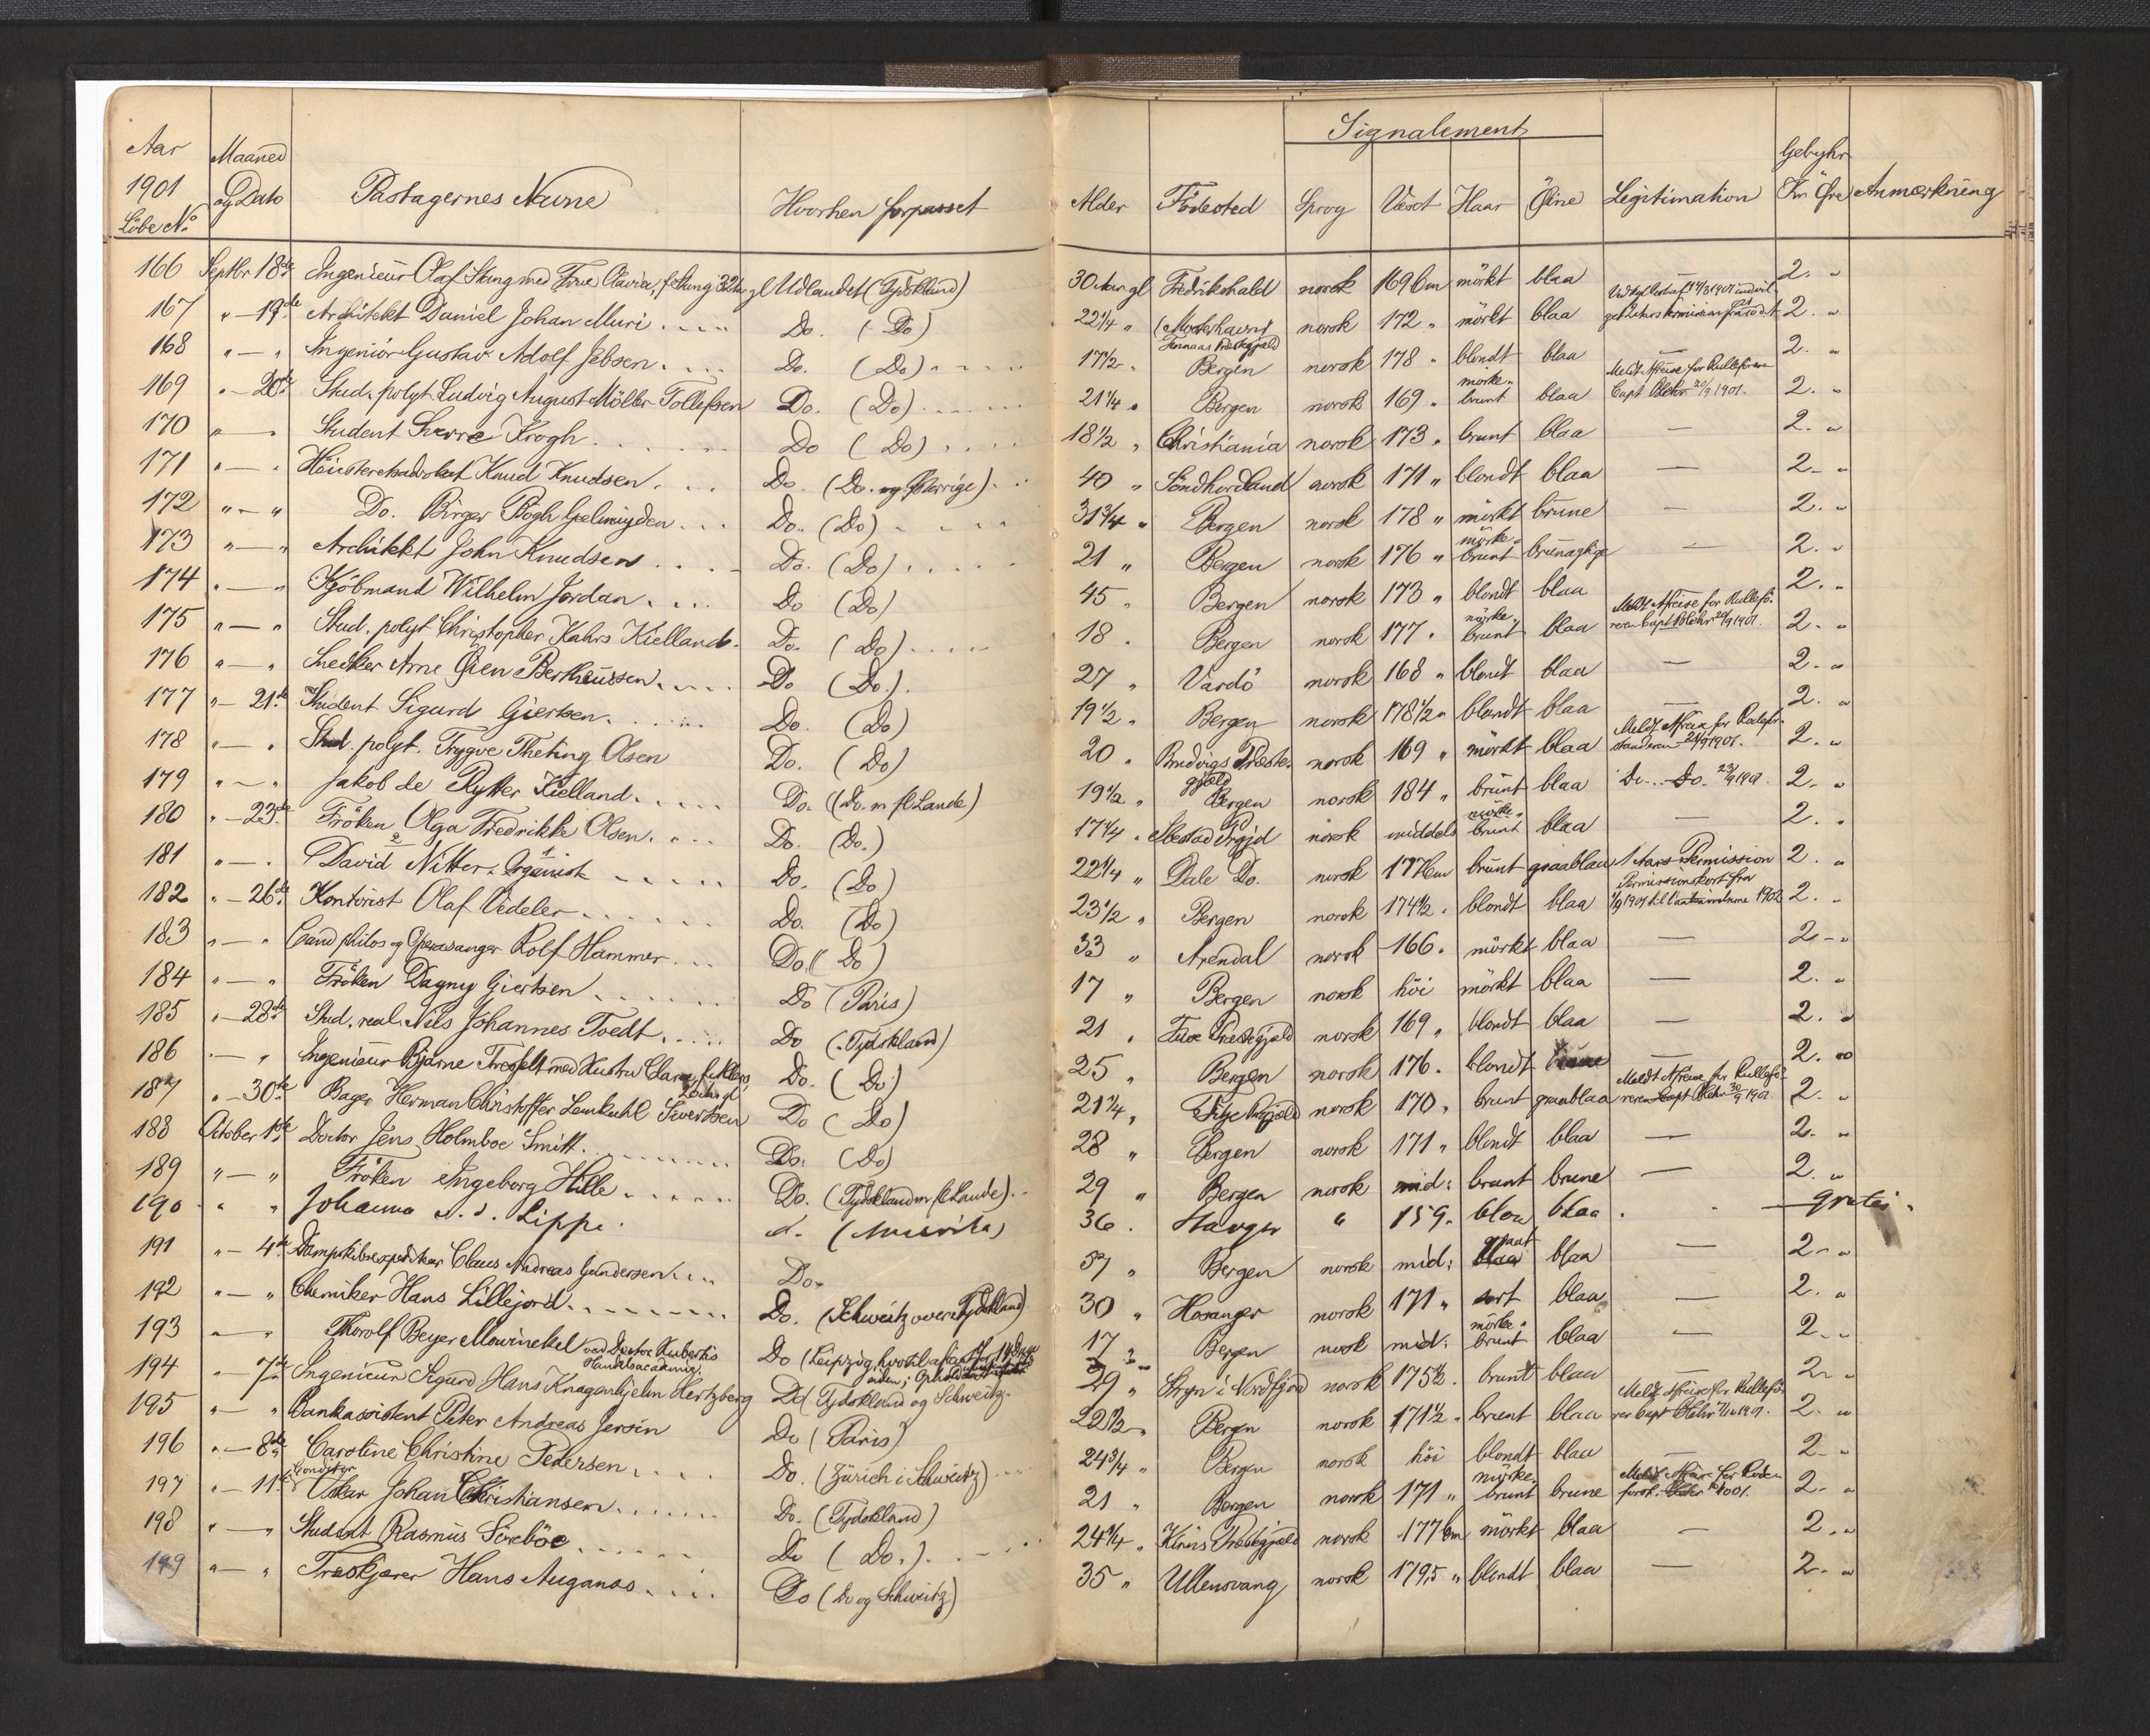 Signalement
Aar 1901 Löbe No Maaned og Dato Passagernes Navne Hvorhen forpasset Alder Födested Sprog Væxt Haar Öine Legitimation Gebyhr Kr Öre Anmærkning
166 Septbr 18de Ingenieur Olaf Stang med Frue Olavia, f. Stang 32 Aar gl Udlandet (Tydskland) 30 Aar gl Fredrikshald norsk 169 Cm mörkt blaa 2. "
167 " — 19de Architekt Daniel Johan Muri .... Do. (Do) 22 1/4 " norsk 172 " mörkt blaa 2. "
168 " — " Ingeniör Gustav Adolf Jebsen .... Do. (Do) .... 17 1/2 " Bergen norsk 178 " blondt blaa — 2. "
169 " — 20de Stud. polyt. Ludvig August Möller Tollefsen Do. (Do) .... 21 1/4 " Bergen norsk 169 " mörke- brunt blaa Meldt Afreise for Rulleförer Capt Blehr 20/9 1901. 2. "
170 " — " Student Sverre Krogh .... Do (Do) .... 18 1/2 " Christiania norsk 173 " brunt blaa — 2. "
171 " — " Höiesteretsadvokat Knud Knudsen .... Do. (Do. og Østerrige) .. 40 " Söndhordland norsk 171 " blondt blaa — 2 - "
172 " — " Do. Birger Bögh Geelmuyden ... Do. (Do) .... 31 3/4 " Bergen norsk 178 " mörkt brune — 2. "
173 " — " Architekt John Knudsen .... Do. (Do) .... 21 " Bergen norsk 176 " mörke- brunt brunagtige — 2. "
174 " — " Kjöbmand Wilhelm Jordan .... Do (Do) 45 " Bergen norsk 173 " blondt blaa 2. "
175 " — " Stud. polyt Christopher Kahrs Kielland. Do. (Do) .... 18 " Bergen norsk 177 " mörke- brunt blaa Meldt Afreise for Rullefö- reren Capt Blehr 20/9 1901. 2. "
176 " — " Snedker Arne Öien Bertheussen .... Do (Do.). 27 " Vardö norsk 168 " blondt blaa — 2. "
177 " — 21de Student Sigurd Giertsen .... Do. (Do) 19 1/2 " Bergen norsk 178 1/2 " blondt blaa — 2. "
178 " — " Stud. polyt. Trygve Theting Olsen Do. (Do) 20 " Bredvigs Præste- gjæld norsk 169 " mörkt blaa Meldt Afreise for 21/9 1901. 2. "
179 " — " Jakob de Rytter Kielland .... Do. (Do. m fl Lande) 19 1/2 " Bergen norsk 184 " brunt blaa Do .. Do. 23/9 1901. 2. "
180 " — 23de Fröken Olga Fredrikke Olsen .... Do. (Do.) 17 1/4 " Ibestad Prgjd norsk middels mörke- brunt blaa — 2. "
181 " — " 2 David Nitter, 1 Organist .... Do. (Do) 22 1/4 " Dale Do. norsk 177 Cm brunt graablaa 1 Aars Permission 2. "
182 " — 26de Kontorist Olaf Vedeler .... Do. (Do) 23 1/2 " Bergen norsk 174 1/2 " blondt blaa Permissionskort fra 1/9 1901 til 1902 2. "
183 " — " Cand philos og Operasanger Rolf Hammer ... Do (Do) 33 " Arendal norsk 166 " mörkt blaa — 2 - "
184 " — " Fröken Dagny Giertsen .... Do (Paris) 17 " Bergen norsk höi mörkt blaa — 2. "
185 " — 28de Stud. real. Nils Johannes Tvedt .... Do (Tydskland) 21 " Præstegjæld norsk 169 " blondt blaa — 2. "
186 " — " Ingenieur Bjarne med Hustru Clara, Do. (Do) 25 " Bergen norsk 176 " blondt — 2. "
187 " — 30te Bager Herman Christoffer Lemkuhl Sivertsen Do (Do) 21 1/4 " Fitje Prgjæld norsk 170 " brunt graablaa Meldt Afreise for Rullefö- reren Capt Blehr 30/9 1901 2. "
188 October 1ste Doctor Jens Holmboe Smitt .... Do. (Do) 28 " Bergen norsk 171 " blondt blaa — 2. "
189 " — " Fröken Ingeborg Hille .... Do. (Tydskland m fl Lande) .. 29 " Bergen norsk mid: brunt brune — 2. "
190 " " Johanna Lippe. d. (Amerika) 36 . " 159 . blaa . gratis.
191 " — 4de Dampskibsexpeditør Claus Andreas Gundersen .... Do. 57 " Bergen norsk mid: graat blaa — 2 - "
192 " — " Chemiker Hans Lillejord .... Do. (Schweitz over Tydskland) 30 " Hosanger norsk 171 " sort blaa — 2. "
193 " — " Thorolf Beyer Mowinckel ved Doctor Huberts Handelsacademi Do (Leipzig, 17 " Bergen norsk mid: mörke- brunt blaa — 2. "
194 " — 7de Ingenieur Sigurd Hans Knagenhjelm Hertzberg Do (Tydskland og Schweitz. 29 " Stryn i Nordfjord norsk 175 1/2 . brunt blaa 2 - "
195 " — " Bankassistent Peter Andreas Jersin Do (Paris) 22 1/2 " Bergen norsk 171 1/2 " brunt blaa Meldt Afreise for Rullefö- rer Capt Blehr 7/10 1901. 2. "
196 " — 8de Caroline Christine Pedersen .... Do. (Zürich i Schweitz) ... 24 3/4 " Bergen norsk höi blondt blaa — 2 - "
197 " — 11te Conditor Oskar Johan Christiansen .... Do. (Tydskland) 21 " Bergen norsk 171 " mörke- brunt brune Meldt Afreise for 2 - "
198 " — " Student Rasmus Söreböe .... Do (Do.) ... 24 1/4 " Kinns Præstegjæld norsk 177 Cm mörkt blaa — 2. "
199 " — " Træskjærer Hans Auganes .... Do (Do og Schweitz) 35 " Ullensvang norsk 179,5 " blondt blaa — 2 - "